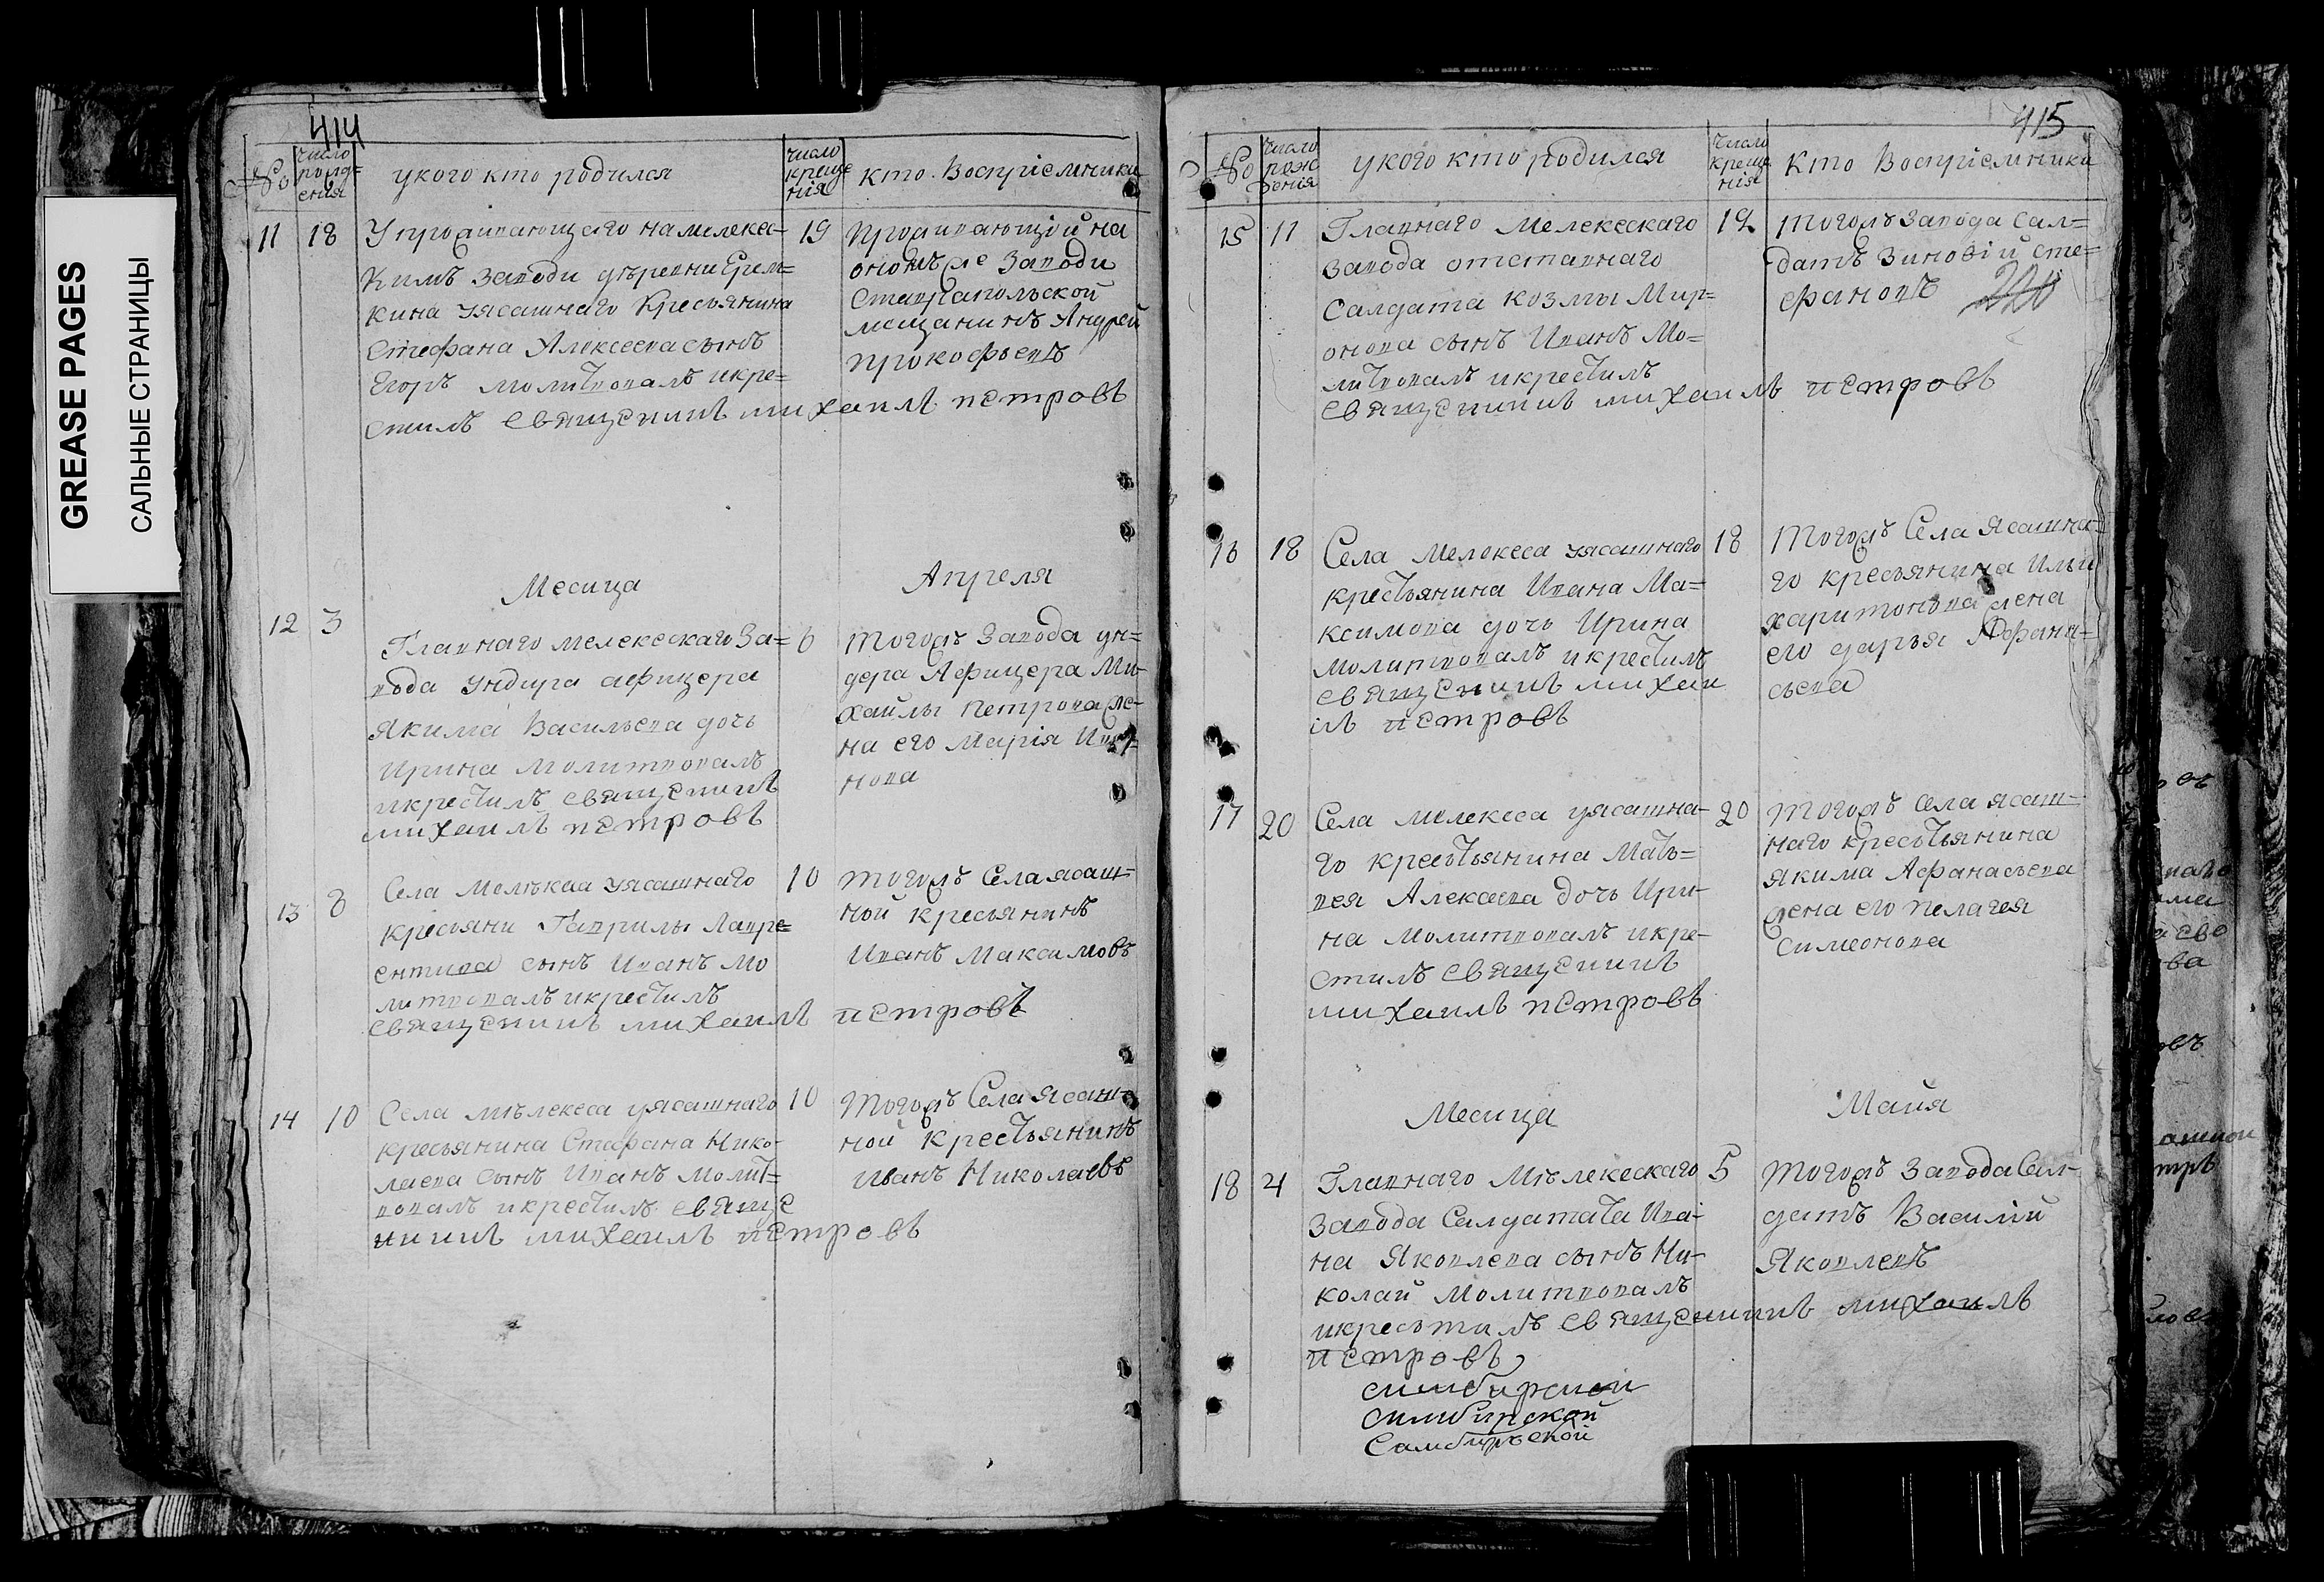 GREASE PAGES
САЛЬНЫЕ СТРАНИЦЫ
414
№
число рожд-ения
у кого кто родился
число креще нія
кто Воспріемники
11
18
У проживающаго на мелекес-
Кимъ заводи деревни Ерем=
кина уясашнаго Кресьянина
Стефана Алексеева сынъ
Егоръ молитвовалъ икре=
стилъ священникъ михаилъ петровъ
19
Проживающій на
ономъ же заводи
Ставрапольской
мещанинъ Андрей
Прокофьевъ
Месица
Апреля
12
3
Главнаго мелекескаго За=
вода ундира афицера
Якима Васильева дочь
Ирина молитвовалъ
икрестилъ священникъ
михаилъ петровъ
6
Тогожъ Завода ун=
дера Афицера Ми-
хаилы Петрова же-
на его Марія Ива-
нова
13
8
Села Мелекеса уясашнаго
кресьяни Гаврилы Лавре=
ентива сынъ Иванъ мо
литвовалъ икрестилъ
священникъ михаилъ петровъ
10
Тогожъ Села ясаш-
ной кресьянинъ
Иванъ Максимовъ
14
10
Села Мѣлекеса уясашнаго
кресьянина Стефана Нико-
лаева сынъ Иванъ молит=
вовалъ икрестилъ свяще
нникъ михаилъ петровъ
10
Тогожъ Села Ясаш-
ной крестьянинъ
Иванъ Николаевъ
415
№
число рож дения
у кого кто родился
число креще нія
Кто Воспріемники
15
11
Главнаго Мелекескаго
завода отставнаго
Салдата козмы Мир=
онова сынъ Иванъ Мо=
литвовалъ икрестилъ
священникъ михаилъ петровъ
12
Тогожъ Завода Сал=
датъ Зиновій Сте=
фановъ
16
18
Села Мелекеса уясашнаго
крестьянина Ивана Ма=
ксимова дочь Ирина
молитвовалъ икрестилъ
священникъ михаи
лъ петровъ
18
Тогожъ Села Ясашна=
го кресьянина Ильи
харитонова жена
его дарья Афана=
сьева
17
20
Села Мелекеса уясашна-
го крестьянина Мать=
вея Алексева дочь Ири-
на молитвовалъ икре-
стилъ священникъ
михаилъ петровъ
20
Тогожъ села ясаш-
наго крестьянина
Якима Афанасьева
жена его пелагея
Симеонова
Месица
Майя
18
4
Главнаго Мѣлекескаго
завода Салдатата Ива-
на Яковлева сынъ Ни-
колай Молитвовалъ
икрестилъ священникъ михаилъ
петровъ
5
Тогожъ Завода Сал-
датъ Василій
Яковлевъ
симбирской
симбирской
Самбирьской